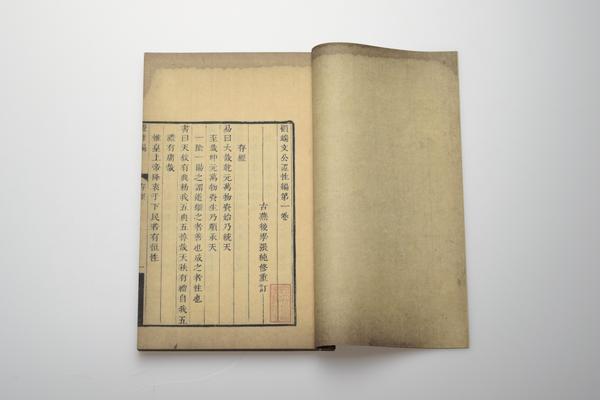 顧端文公證性編第一卷
古燕後學張純修重訂
存經
易曰大哉乾元萬物資始乃統天
至哉坤元萬物資生乃順承天
一陰一陽之謂道繼之者善也成之者性也
書曰天敘有典勑我五典五惇哉天秩有禮自我五
禮有庸哉
惟皇上帝降衷于下民若有恒性
存經